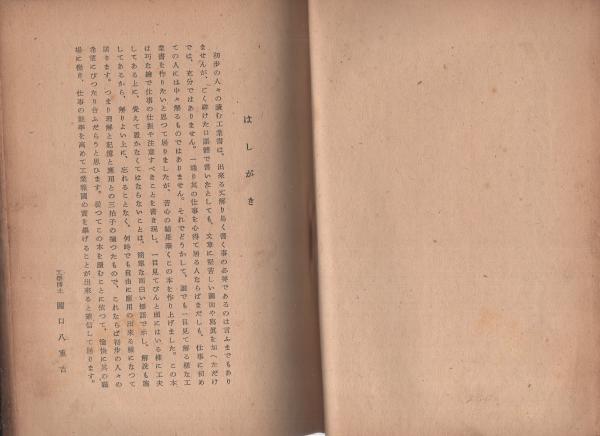 はしがき
初歩の人々の讀む工業書は、出來る丈解り易く書く事の必要であるのは言ふまでもあり
ませんが、ごく碎けた口語體で書いたとしても、文章に堅苦しい圖面や寫眞を加へただけ
では、充分ではありません。一通り其の仕事を心得て居る人ならばまだしも、仕事に初め
ての人には中々解るものではありません。それでどうかして、誰でも一目見て解る樣な工
業書を作りたいと思つて居りましたが、苦心の結果漸くこの本を作り上げました。この本
は巧な繪で仕事の仕振や注意すべきことを書き現し、一目見てぴんと頭にはいる樣に工夫
してある上に、覺えて置かなくてはならないことは、簡單な面白い標語で示し、解說も施
してあるから、解りよい上に、忘れることなく、何時でも自由に應用の出來る樣になつて
居ります。つまり理解と記憶と應用との三拍子の揃つたもので、これならば初步の人々の
希望にぴつたり合ふだらうと思ひます。從つてこの本を讀むことに依つて、愉快に其の職
場に働き、仕事の能率を高めて工業報國の實を擧げることが出來ると確信して居ります。
工學博士 關口八重吉